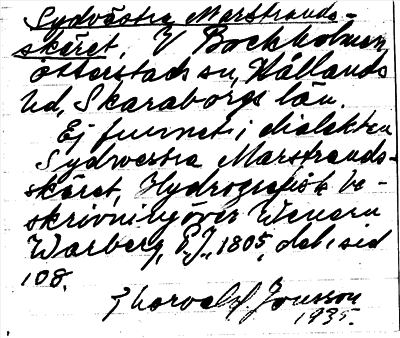 Sydvästra Marstrands-
skäret, V Bockholmen
Otterstads sn, Kållands
hd, Skaraborgs län.
Ej funnet i dialekten
Sydwestra Marstrands-
skäret, Hydrografisk be-
skrivning över Wenern
Warberg, P.J., 1805, del. i sid
108.
Jonsson
1935.